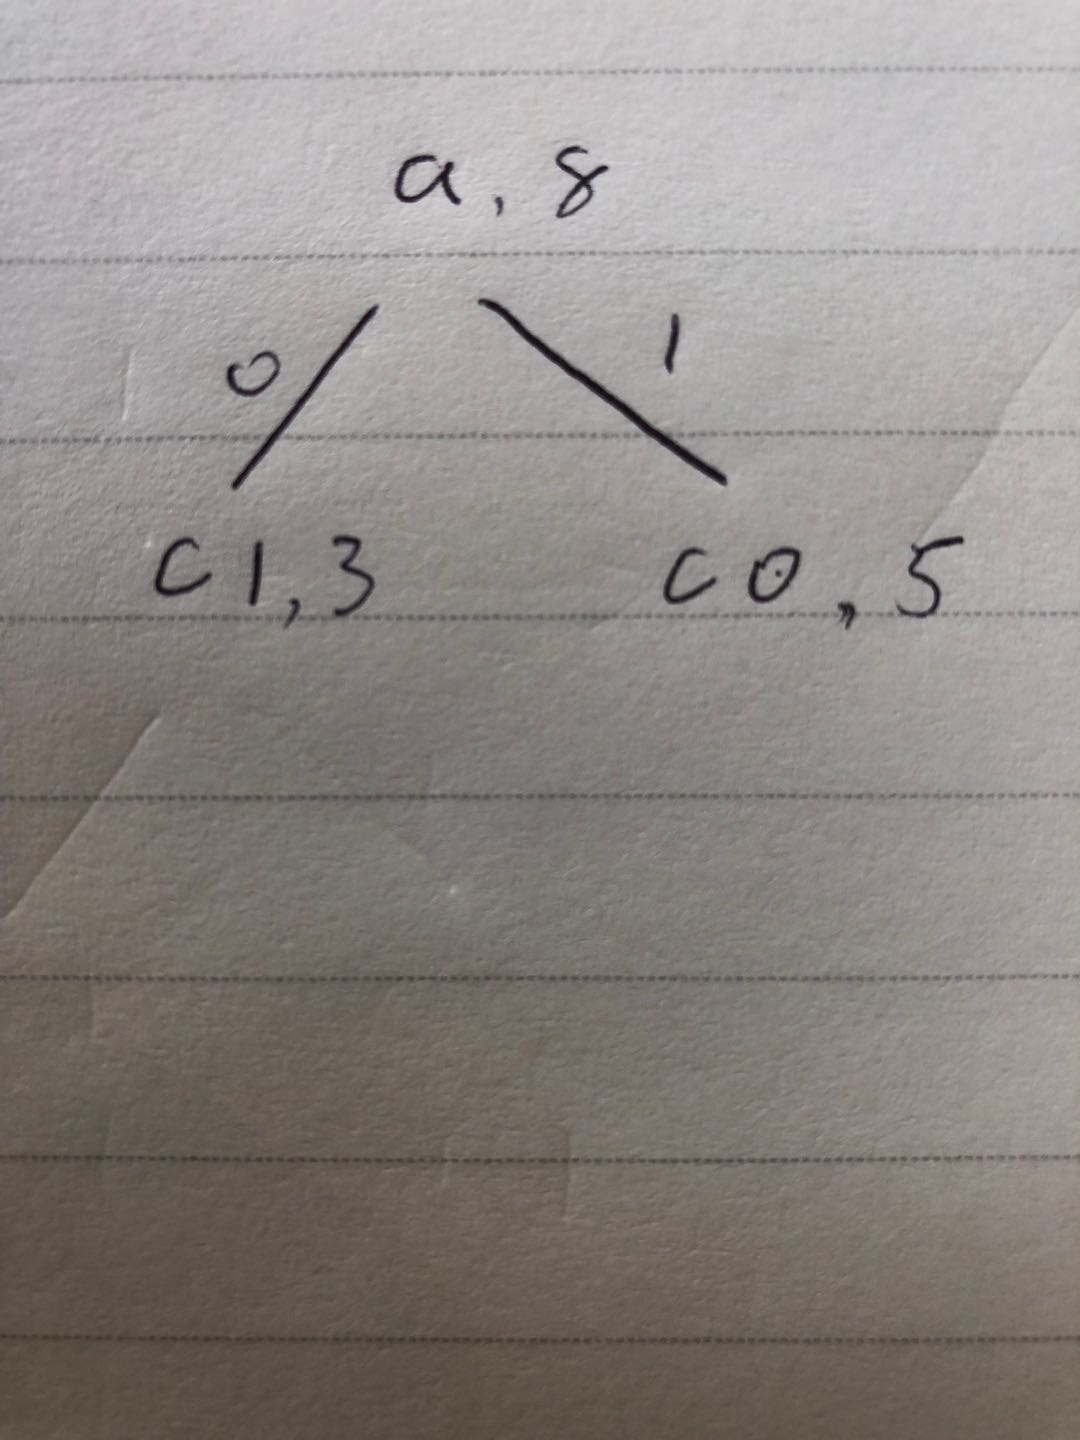 a, 8
0 1
C1,3 C0,5